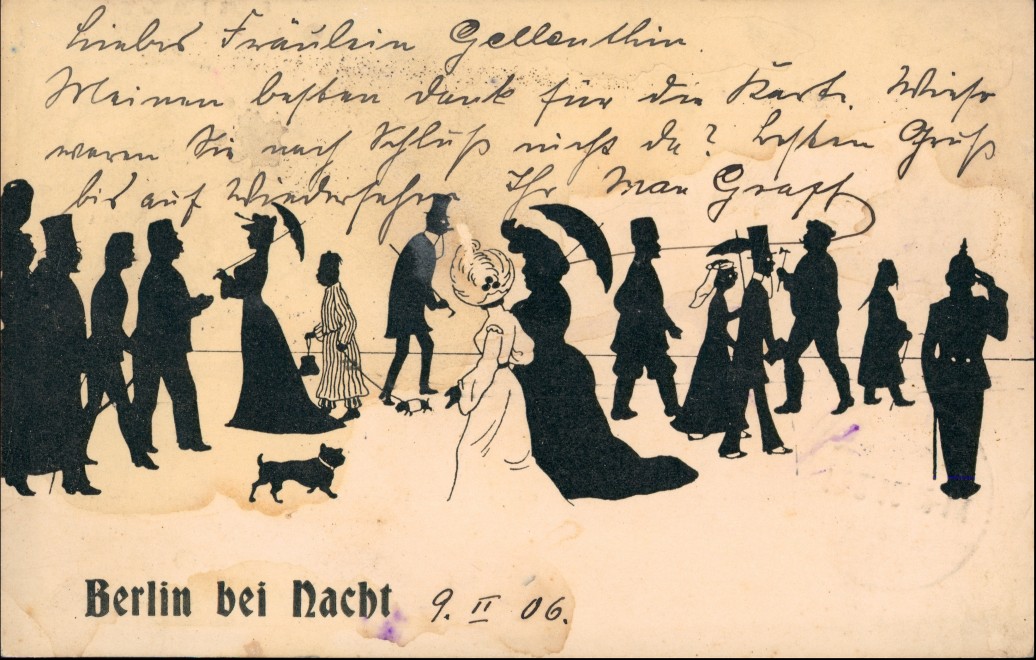 Liebes Fräulein Gellenthin.
Meinen besten Dank für die Karte. Wieso
waren Sie nach Schluß nicht da? Besten Gruß
bis auf Wiedersehen Ihr Max Grapf
Berlin bei Nacht 9. II 06.